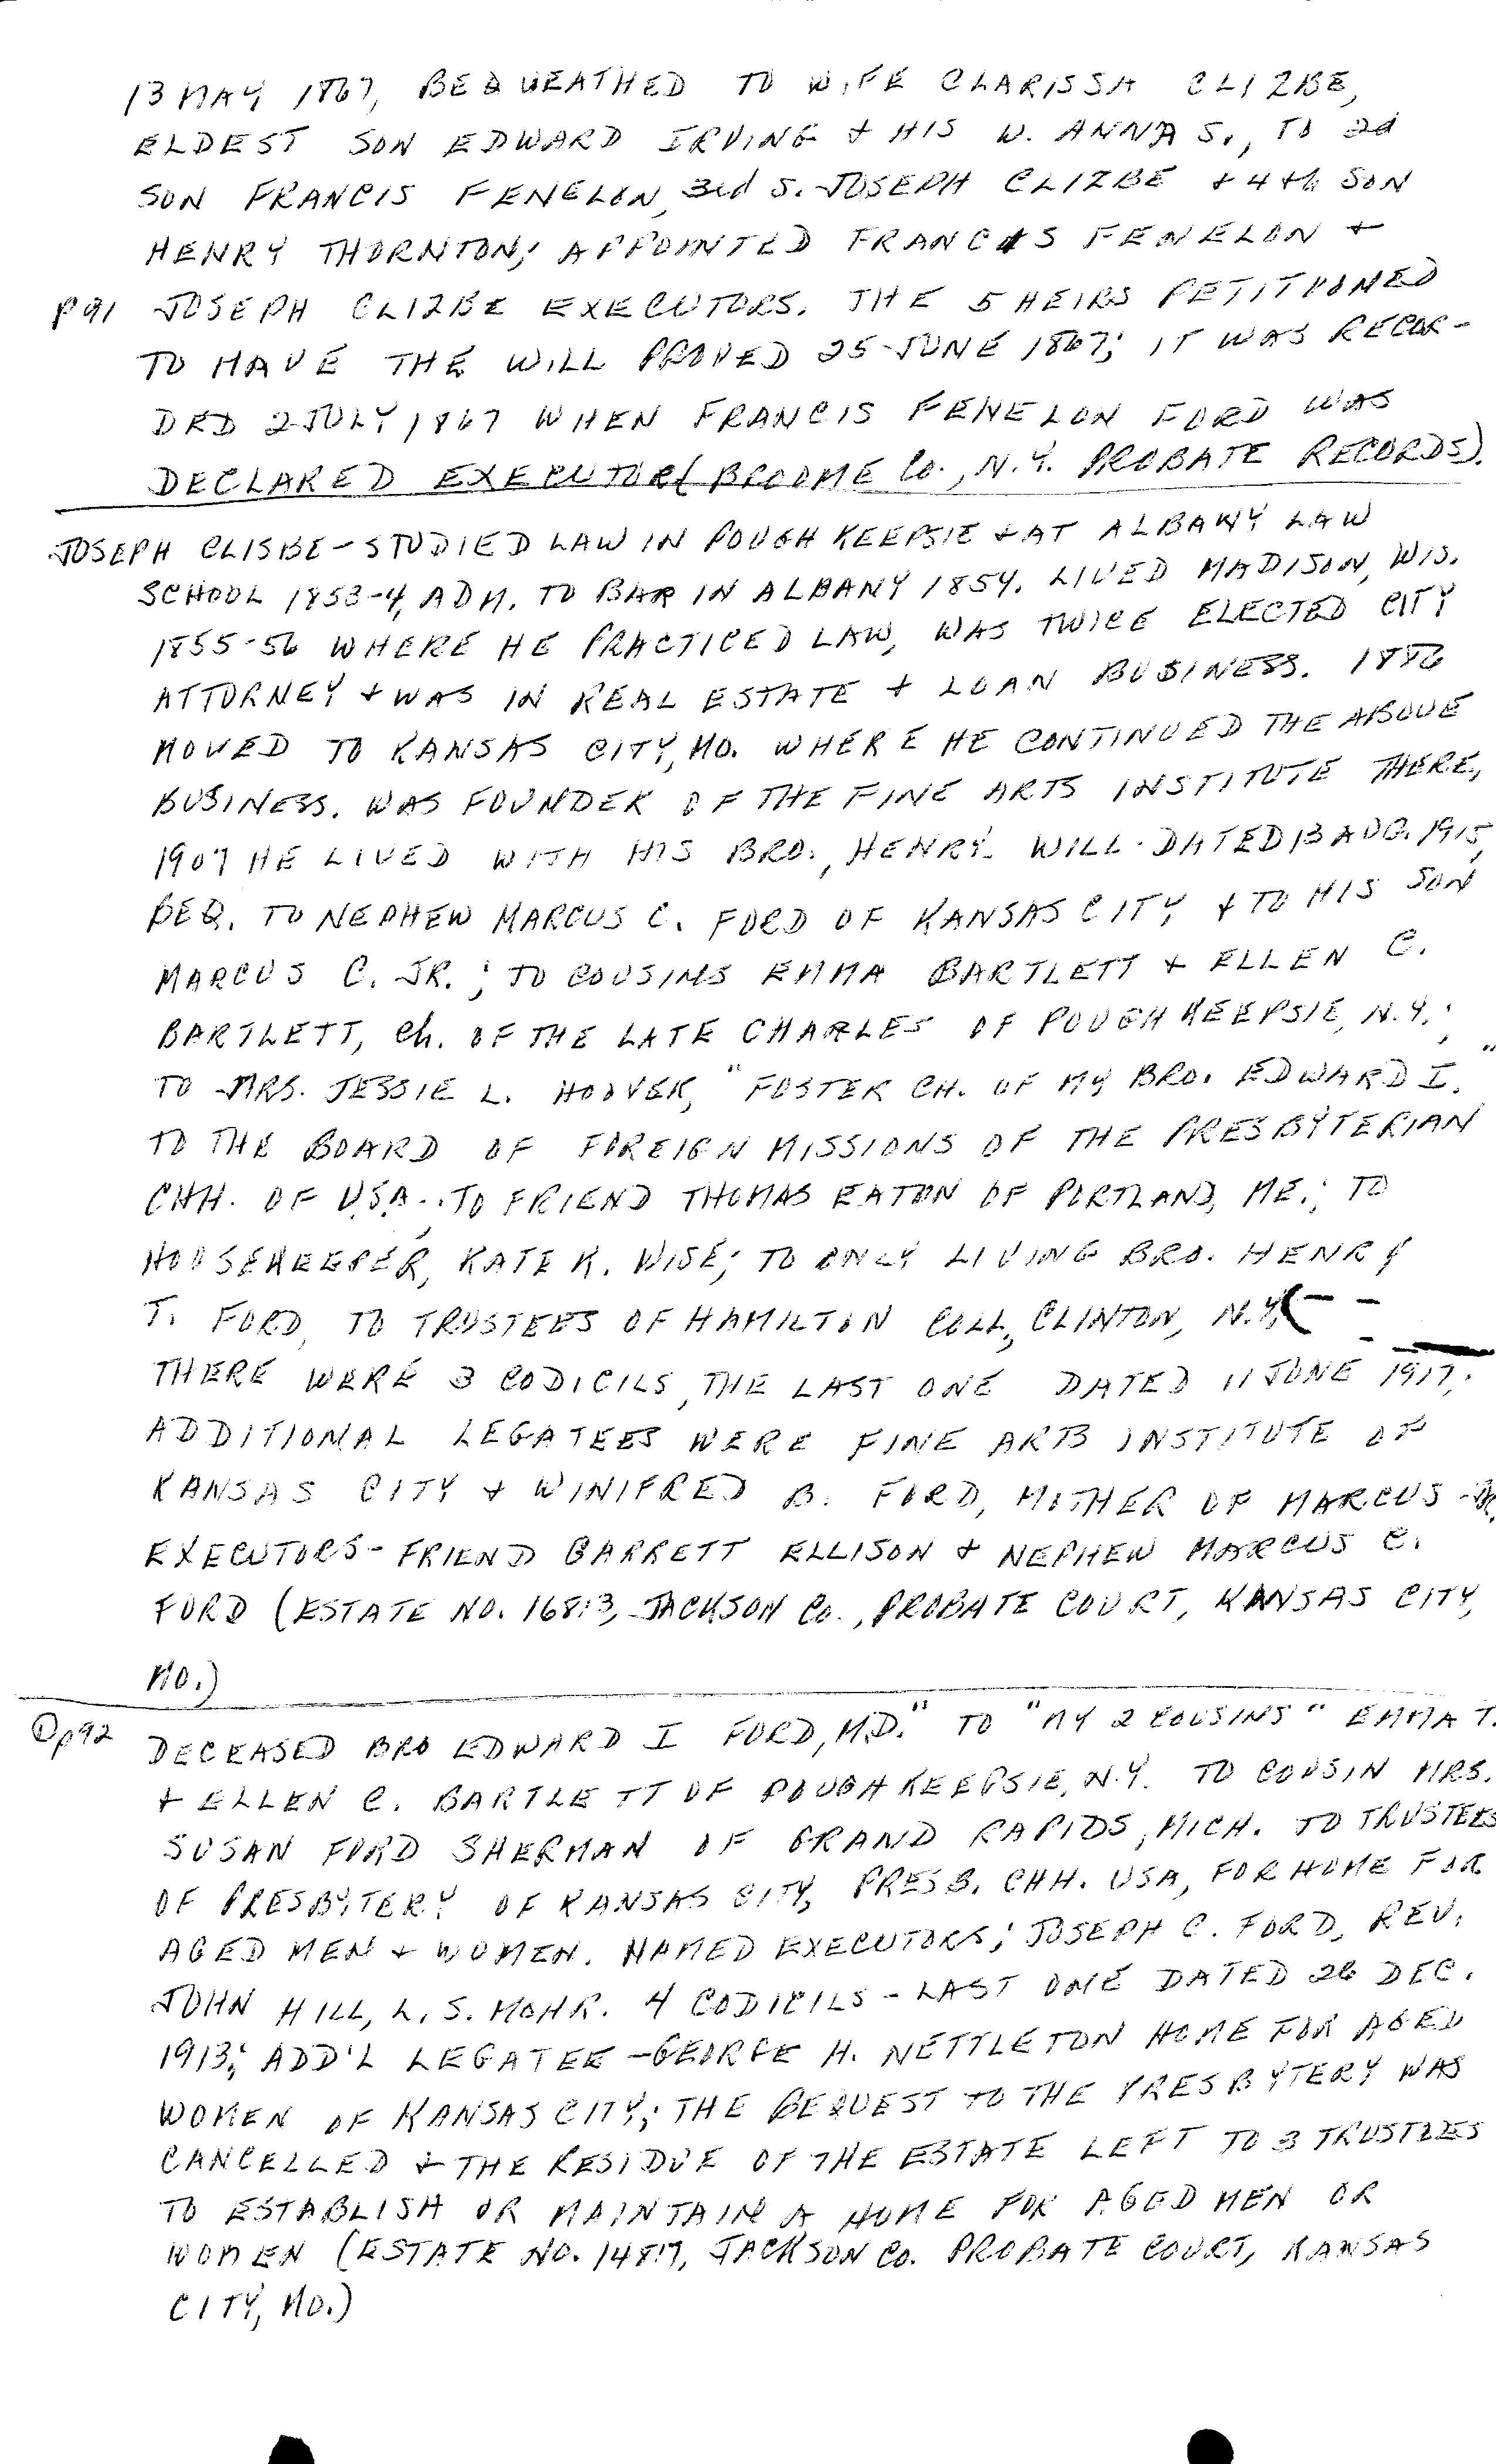 13 MAY 1867, BEQUEATHED TO WIFE CLARISSA CLIZBE,
ELDEST SON EDWARD IRVING + HIS W. ANNA S., TO 2d
SON FRANCIS FENELON, 3rd S. JOSEPH CLIZBE + 4th SON
HENRY THORNTON; APPOINTED FRANCIS FENELON +
P91 JOSEPH CLIZBE EXECUTORS. THE 5 HEIRS PETITIONED
TO HAVE THE WILL PROVED 25 JUNE 1867; IT WAS RECOR-
DED 2 JULY 1867 WHEN FRANCIS FENELON FORD WAS
DECLARED EXECUTOR (BROOME Co., N.Y. PROBATE RECORDS).
JOSEPH CLISBE - STUDIED LAW IN POUGHKEEPSIE + AT ALBANY LAW
SCHOOL 1853-4, ADM. TO BAR IN ALBANY 1854. LIVED MADISON, WIS.
1855-56 WHERE HE PRACTICED LAW, WAS TWICE ELECTED CITY
ATTORNEY + WAS IN REAL ESTATE + LOAN BUSINESS. 1886
MOVED TO KANSAS CITY, MO. WHERE HE CONTINUED THE ABOVE
BUSINESS. WAS FOUNDER OF THE FINE ARTS INSTITUTE THERE,
1907 HE LIVED WITH HIS BRO., HENRY. WILL DATED 13 AUG. 1915,
BEQ. TO NEPHEW MARCUS C. FORD OF KANSAS CITY + TO HIS SON
MARCUS C. JR.; TO COUSINS EMMA BARTLETT + ELLEN C.
BARTLETT, Ch. OF THE LATE CHARLES OF POUGHKEEPSIE, N.Y.;
TO MRS. JESSIE L. HOOVER, "FOSTER CH. OF MY BRO. EDWARD I."
TO THE BOARD OF FOREIGN MISSIONS OF THE PRESBYTERIAN
CHH. OF U.S.A.; TO FRIEND THOMAS EATON OF PORTLAND, ME.; TO
HOUSEKEEPER, KATE K. WISE; TO ONLY LIVING BRO. HENRY
T. FORD, TO TRUSTEES OF HAMILTON COLL, CLINTON, N.Y. (- -
THERE WERE 3 CODICILS, THE LAST ONE DATED 11 JUNE 1917;
ADDITIONAL LEGATEES WERE FINE ARTS INSTITUTE OF
KANSAS CITY + WINIFRED B. FORD, MOTHER OF MARCUS JR.
EXECUTORS - FRIEND GARRETT ELLISON + NEPHEW MARCUS C.
FORD (ESTATE NO. 16813, JACKSON Co., PROBATE COURT, KANSAS CITY,
MO.)
① p92 DECEASED BRO EDWARD I FORD, M.D." TO "MY 2 COUSINS" EMMA T.
+ ELLEN C. BARTLETT OF POUGHKEEPSIE, N.Y. TO COUSIN MRS.
SUSAN FORD SHERMAN OF GRAND RAPIDS, MICH. TO TRUSTEES
OF PRESBYTERY OF KANSAS CITY, PRESB. CHH. USA, FOR HOME FOR
AGED MEN + WOMEN. NAMED EXECUTORS; JOSEPH C. FORD, REV.
JOHN HILL, L. S. MOHR. 4 CODICILS - LAST ONE DATED 26 DEC.
1913; ADD'L LEGATEE - GEORGE H. NETTLETON HOME FOR AGED
WOMEN OF KANSAS CITY; THE BEQUEST TO THE PRESBYTERY WAS
CANCELLED + THE RESIDUE OF THE ESTATE LEFT TO 3 TRUSTEES
TO ESTABLISH OR MAINTAIN A HOME FOR AGED MEN OR
WOMEN (ESTATE NO. 14817, JACKSON Co. PROBATE COURT, KANSAS
CITY, MO.)